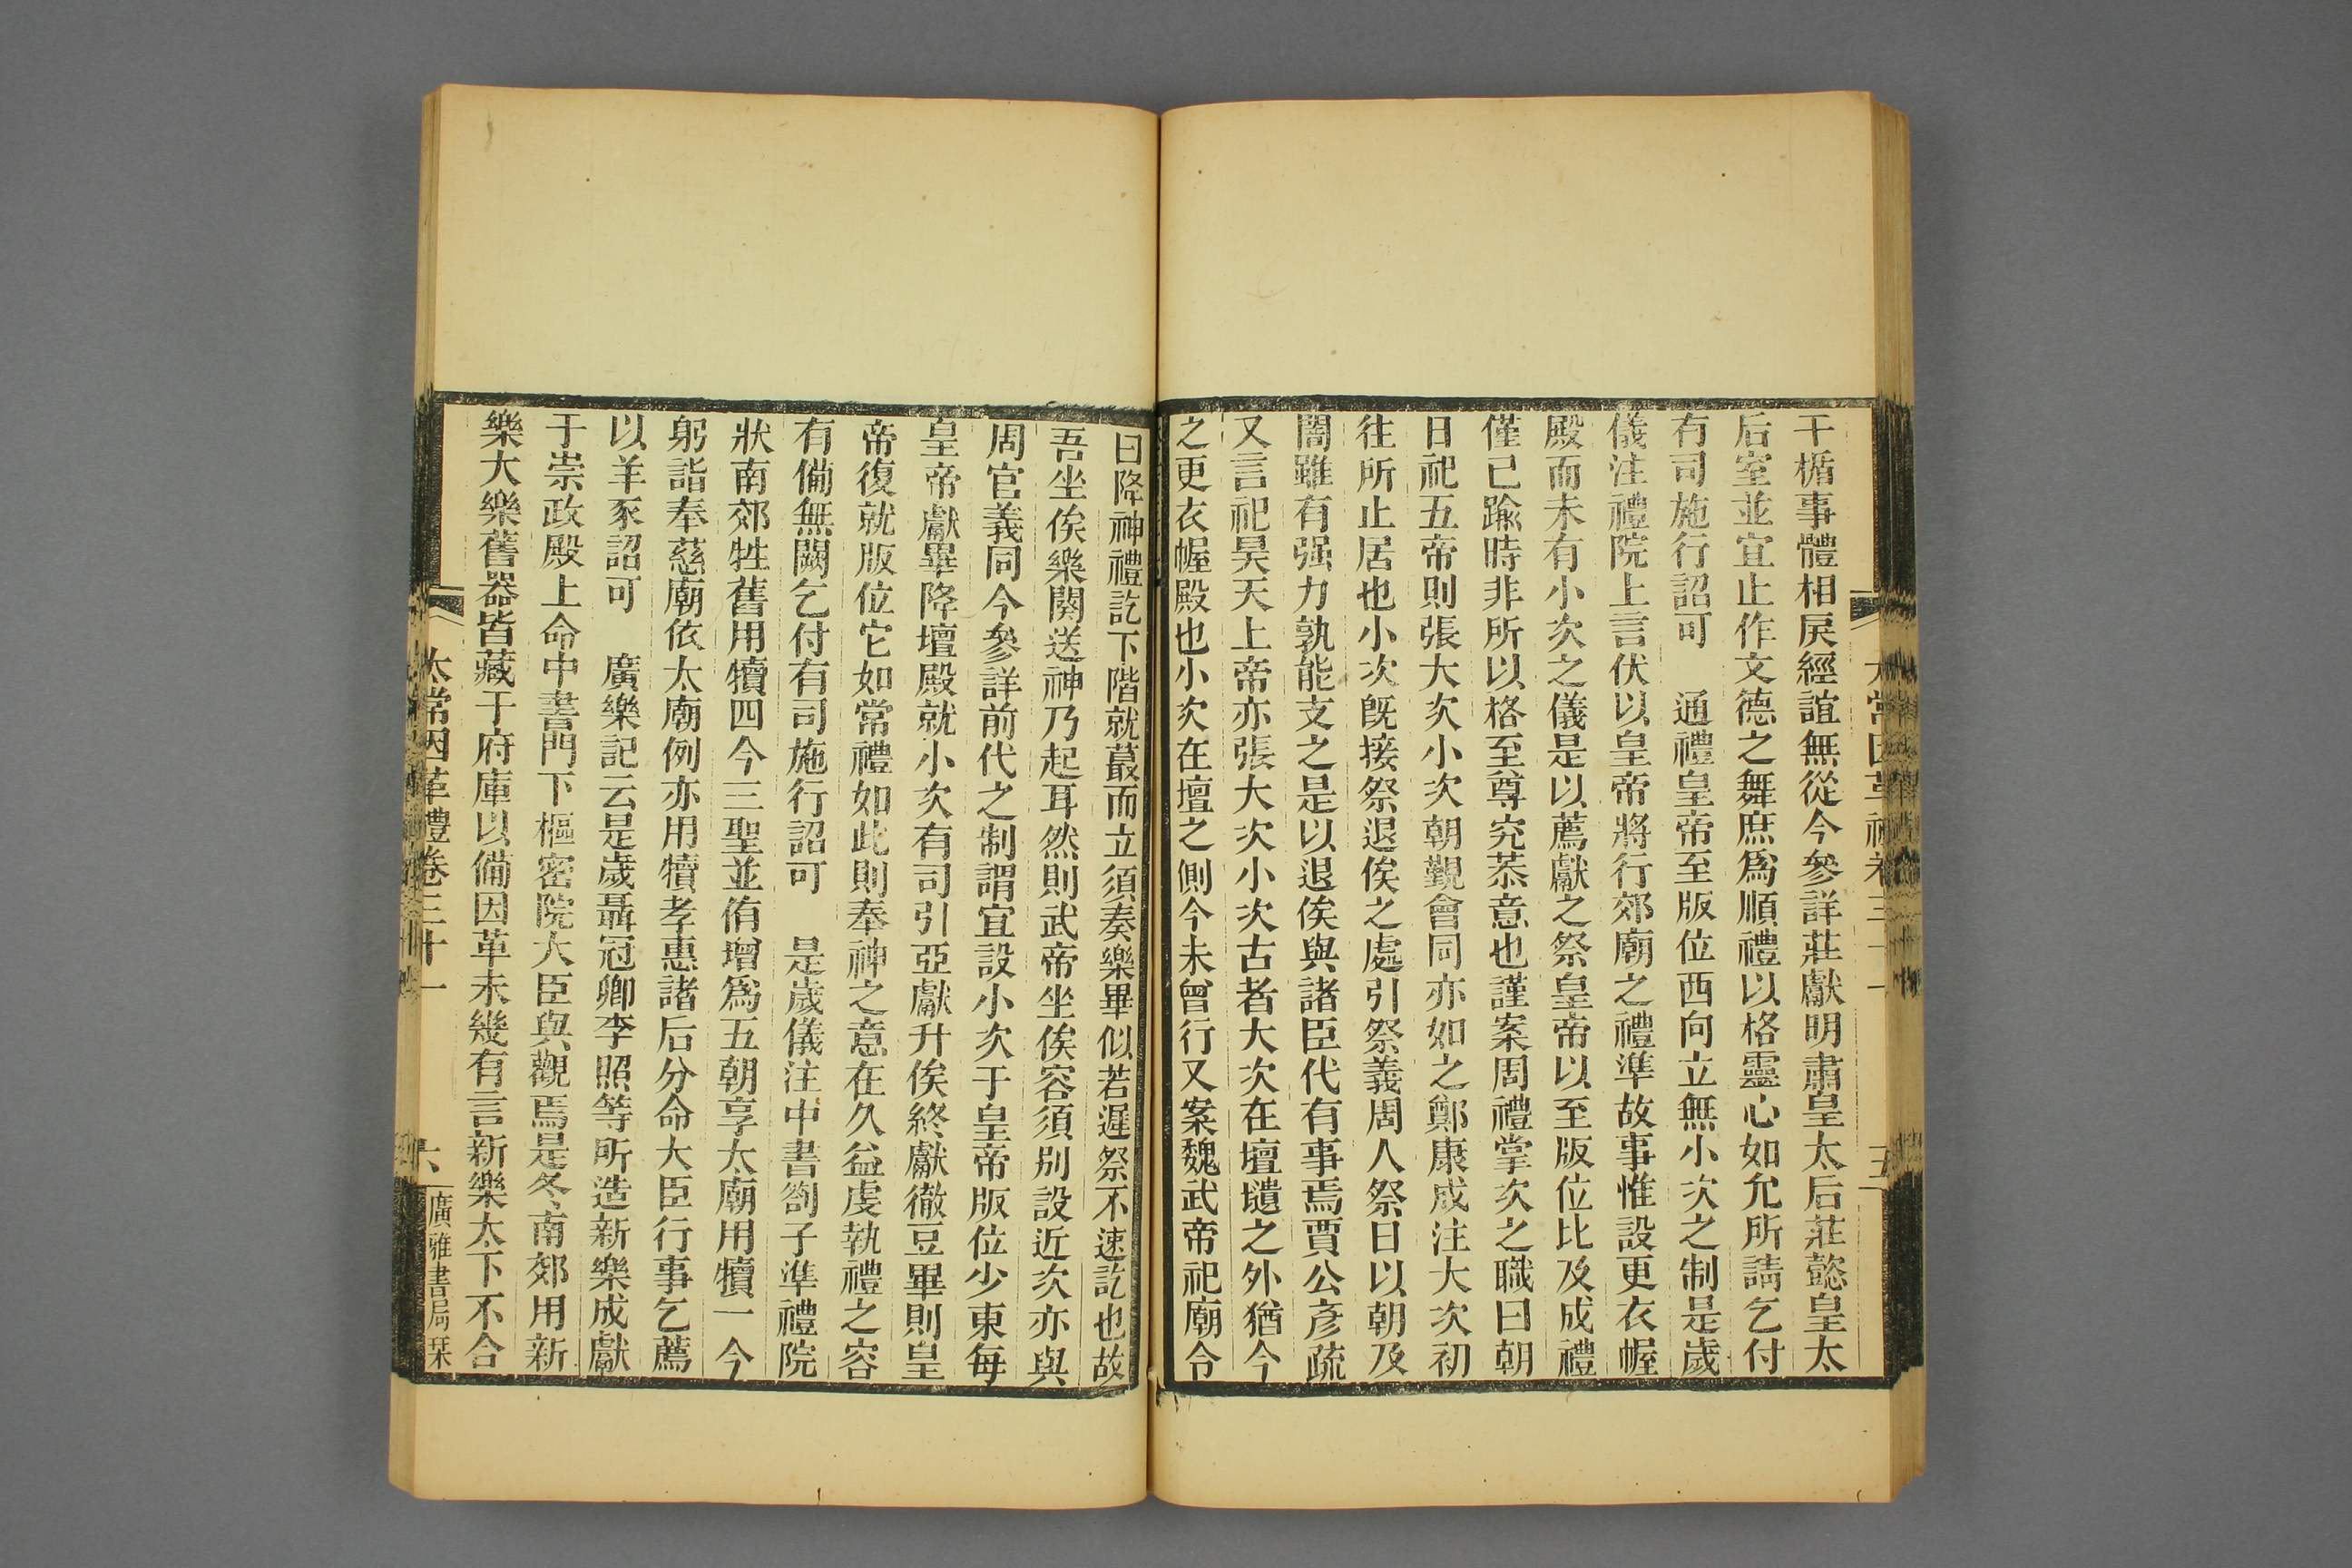 干楯事體相戾經誼無從今參詳莊獻明肅皇太后莊懿皇太
后室並宜止作文德之舞庶爲順禮以格靈心如允所請乞付
有司施行詔可　通禮皇帝至版位西向立無小次之制是歲
儀注禮院上言伏以皇帝將行郊廟之禮準故事惟設更衣幄
殿而未有小次之儀是以薦獻之祭皇帝以至版位比及成禮
僅已踰時非所以格至尊究恭意也謹案周禮掌次之職曰朝
日祀五帝則張大次小次朝覲會同亦如之鄭康成注大次初
往所止居也小次旣接祭退俟之處引祭義周人祭日以朝及
闇雖有强力孰能支之是以退俟與諸臣代有事焉賈公彥疏
又言祀昊天上帝亦張大次小次古者大次在壇壝之外猶今
之更衣幄殿也小次在壇之側今未曾行又案魏武帝祀廟令
曰降神禮訖下階就蕞而立須奏樂畢似若遲祭不速訖也故
吾坐俟樂闋送神乃起耳然則武帝坐俟容須別設近次亦與
周官義同今參詳前代之制謂宜設小次于皇帝版位少東每
皇帝獻畢降壇殿就小次有司引亞獻升俟終獻徹豆畢則皇
帝復就版位它如常禮如此則奉神之意在久益虔執禮之容
有備無闕乞付有司施行詔可　是歲儀注中書劄子準禮院
狀南郊牲舊用犢四今三聖並侑增爲五朝享太廟用犢一今
躬詣奉慈廟依太廟例亦用犢孝惠諸后分命大臣行事乞薦
以羊豕詔可　廣樂記云是歲聶冠卿李照等所造新樂成獻
于崇政殿上命中書門下樞密院大臣與觀焉是冬南郊用新
樂大樂舊器皆藏于府庫以備因革未幾有言新樂太下不合
太常因革禮卷三十一
六
廣雅書局栞